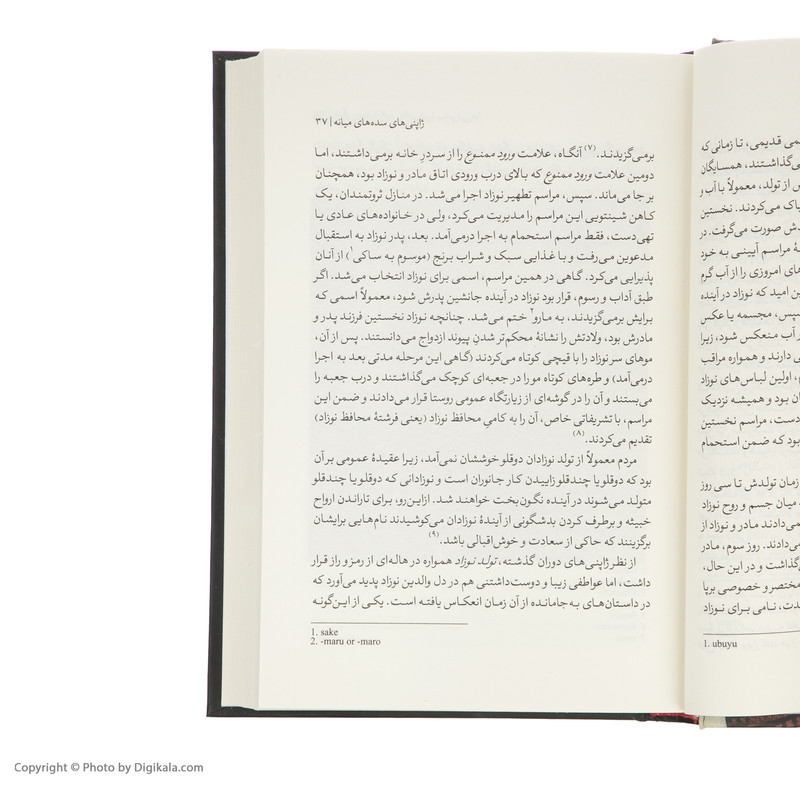 می قدیمی، تا زمانی که
ی‌گذاشتند، همسایگان
س از تولد، معمولاً با آب و
پاک می‌کردند. نخستین
دش صورت می‌گرفت. در
ۀ مراسم آیینی به خود
های امروزی را از آب گرم
ین امید که نوزاد در آینده
سپس، مجسمه یا عکس
ر آب منعکس شود، زیرا
ی دارند و همواره مراقب
، اولین لباس‌های نوزاد
ان بود و همیشه نزدیک
دست، مراسم نخستین
بود که ضمن استحمام
زمان تولدش تا سی روز
میان جسم و روح نوزاد
می‌دادند مادر و نوزاد از
ی‌دادند. روز سوم، مادر
گذاشت و در این حال،
مختصر و خصوصی برپا
دت، نامی برای نوزاد
1. ubuyu
ژاپنی‌های سده‌های میانه | ۳۷
برمی‌گزیدند.(۷) آنگاه، علامت ورود ممنوع را از سردرِ خانه برمی‌داشتند، اما
دومین علامت ورود ممنوع که بالای درب ورودی اتاق مادر و نوزاد بود، همچنان
بر جا می‌ماند. سپس، مراسم تطهیر نوزاد اجرا می‌شد. در منازل ثروتمندان، یک
کاهن شینتویی این مراسم را مدیریت می‌کرد، ولی در خانواده‌های عادی یا
تهی‌دست، فقط مراسم استحمام به اجرا درمی‌آمد. بعد، پدر نوزاد به استقبال
مدعوین می‌رفت و با غذایی سبک و شراب برنج (موسوم به ساکی۱) از آنان
پذیرایی می‌کرد. گاهی در همین مراسم، اسمی برای نوزاد انتخاب می‌شد. اگر
طبق آداب و رسوم، قرار بود نوزاد در آینده جانشین پدرش شود، معمولاً اسمی که
برایش برمی‌گزیدند، به مارو۲ ختم می‌شد. چنانچه نوزاد نخستین فرزند پدر و
مادرش بود، ولادتش را نشانۀ محکم‌تر شدنِ پیوند ازدواج می‌دانستند. پس از آن،
موهای سر نوزاد را با قیچی کوتاه می‌کردند (گاهی این مرحله مدتی بعد به اجرا
درمی‌آمد) و طره‌های کوتاه مو را در جعبه‌ای کوچک می‌گذاشتند و درب جعبه را
می‌بستند و آن را در گوشه‌ای از زیارتگاه عمومی روستا قرار می‌دادند و ضمن این
مراسم، با تشریفاتی خاص، آن را به کامیِ محافظ نوزاد (یعنی فرشتۀ محافظ نوزاد)
تقدیم می‌کردند.(۸)
مردم معمولاً از تولد نوزادان دوقلو خوششان نمی‌آمد، زیرا عقیدۀ عمومی بر آن
بود که دوقلو یا چندقلو زاییدن کار جانوران است و نوزادانی که دوقلو یا چندقلو
متولد می‌شوند در آینده نگون‌بخت خواهند شد. ازاین‌رو، برای تاراندن ارواح
خبیثه و برطرف کردن بدشگونی از آیندۀ نوزادان می‌کوشیدند نام‌هایی برایشان
برگزینند که حاکی از سعادت و خوش‌اقبالی باشد.(۹)
از نظر ژاپنی‌های دوران گذشته، تولد نوزاد همواره در هاله‌ای از رمز و راز قرار
داشت، اما عواطفی زیبا و دوست‌داشتنی هم در دل والدین نوزاد پدید می‌آورد که
در داستان‌های به‌جامانده از آن زمان انعکاس یافته است. یکی از این‌گونه
1. sake
2. -maru or -maro
Copyright © Photo by Digikala.com